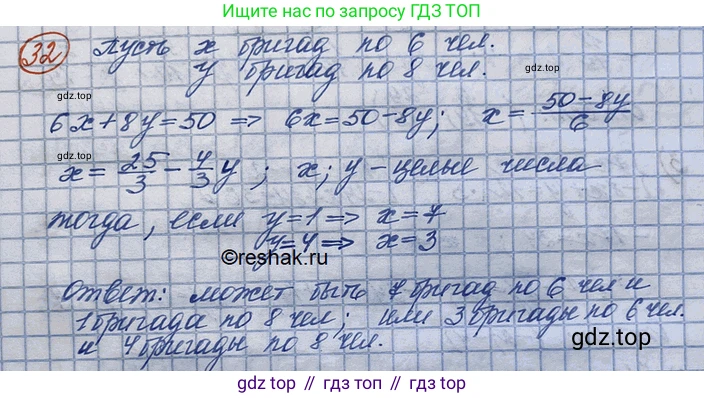 Ищите нас по запросу ГДЗ ТОП
32 Пусть x бригад по 6 чел.
y бригад по 8 чел.
gdz.top
gdz.top
6x+8y=50 => 6x=50-8y; x= 50-8y/6
gdz.top
x= 25/3 - 4/3 y ; x; y - целые числа
тогда, если y=1 => x=7
y=4 => x=3
gdz.top
©reshak.ru
Ответ: может быть 7 бригад по 6 чел и
1 бригада по 8 чел; или 3 бригады по 6 чел.
и 4 бригады по 8 чел.
gdz.top
gdz.top
gdz.top // гдз топ // gdz.top